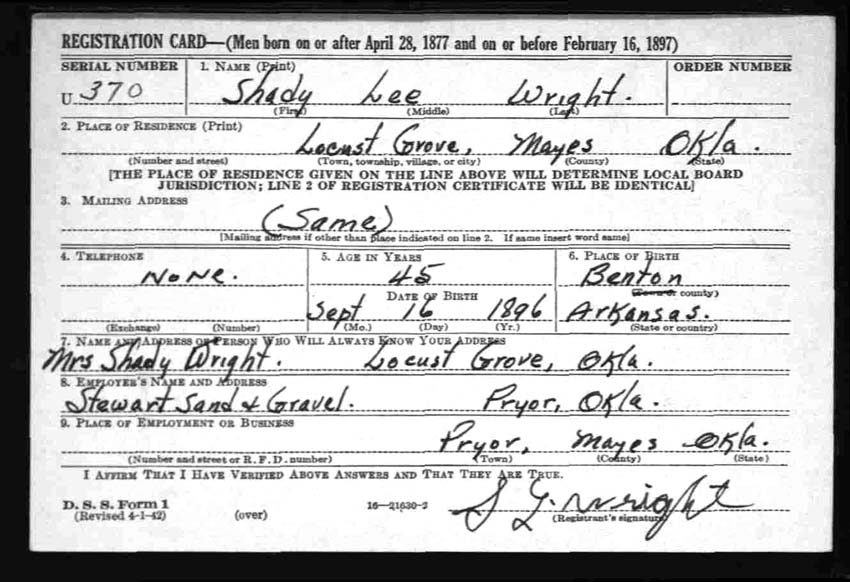 REGISTRATION CARD—(Men born on or after April 28, 1877 and on or before February 16, 1897)
SERIAL NUMBER 1. NAME (Print) ORDER NUMBER
U 370 Shady Lee Wright.
(First) (Middle) (Last)
2. PLACE OF RESIDENCE (Print)
Locust Grove, Mayes Okla.
(Number and street) (Town, township, village, or city) (County) (State)
[THE PLACE OF RESIDENCE GIVEN ON THE LINE ABOVE WILL DETERMINE LOCAL BOARD
JURISDICTION; LINE 2 OF REGISTRATION CERTIFICATE WILL BE IDENTICAL]
3. MAILING ADDRESS
(Same)
[Mailing address if other than place indicated on line 2. If same insert word same]
4. TELEPHONE 5. AGE IN YEARS 6. PLACE OF BIRTH
None. 45 Benton
DATE OF BIRTH (Town or county)
Sept 16 1896 Arkansas.
(Exchange) (Number) (Mo.) (Day) (Yr.) (State or country)
7. NAME AND ADDRESS OF PERSON WHO WILL ALWAYS KNOW YOUR ADDRESS
Mrs Shady Wright. Locust Grove, Okla.
8. EMPLOYER'S NAME AND ADDRESS
Stewart Sand & Gravel. Pryor, Okla.
9. PLACE OF EMPLOYMENT OR BUSINESS
Pryor, Mayes Okla.
(Number and street or R. F. D. number) (Town) (County) (State)
I AFFIRM THAT I HAVE VERIFIED ABOVE ANSWERS AND THAT THEY ARE TRUE.
D. S. S. Form 1
(Revised 4-1-42) (over) 16—21630-2 S L. Wright
(Registrant's signature)